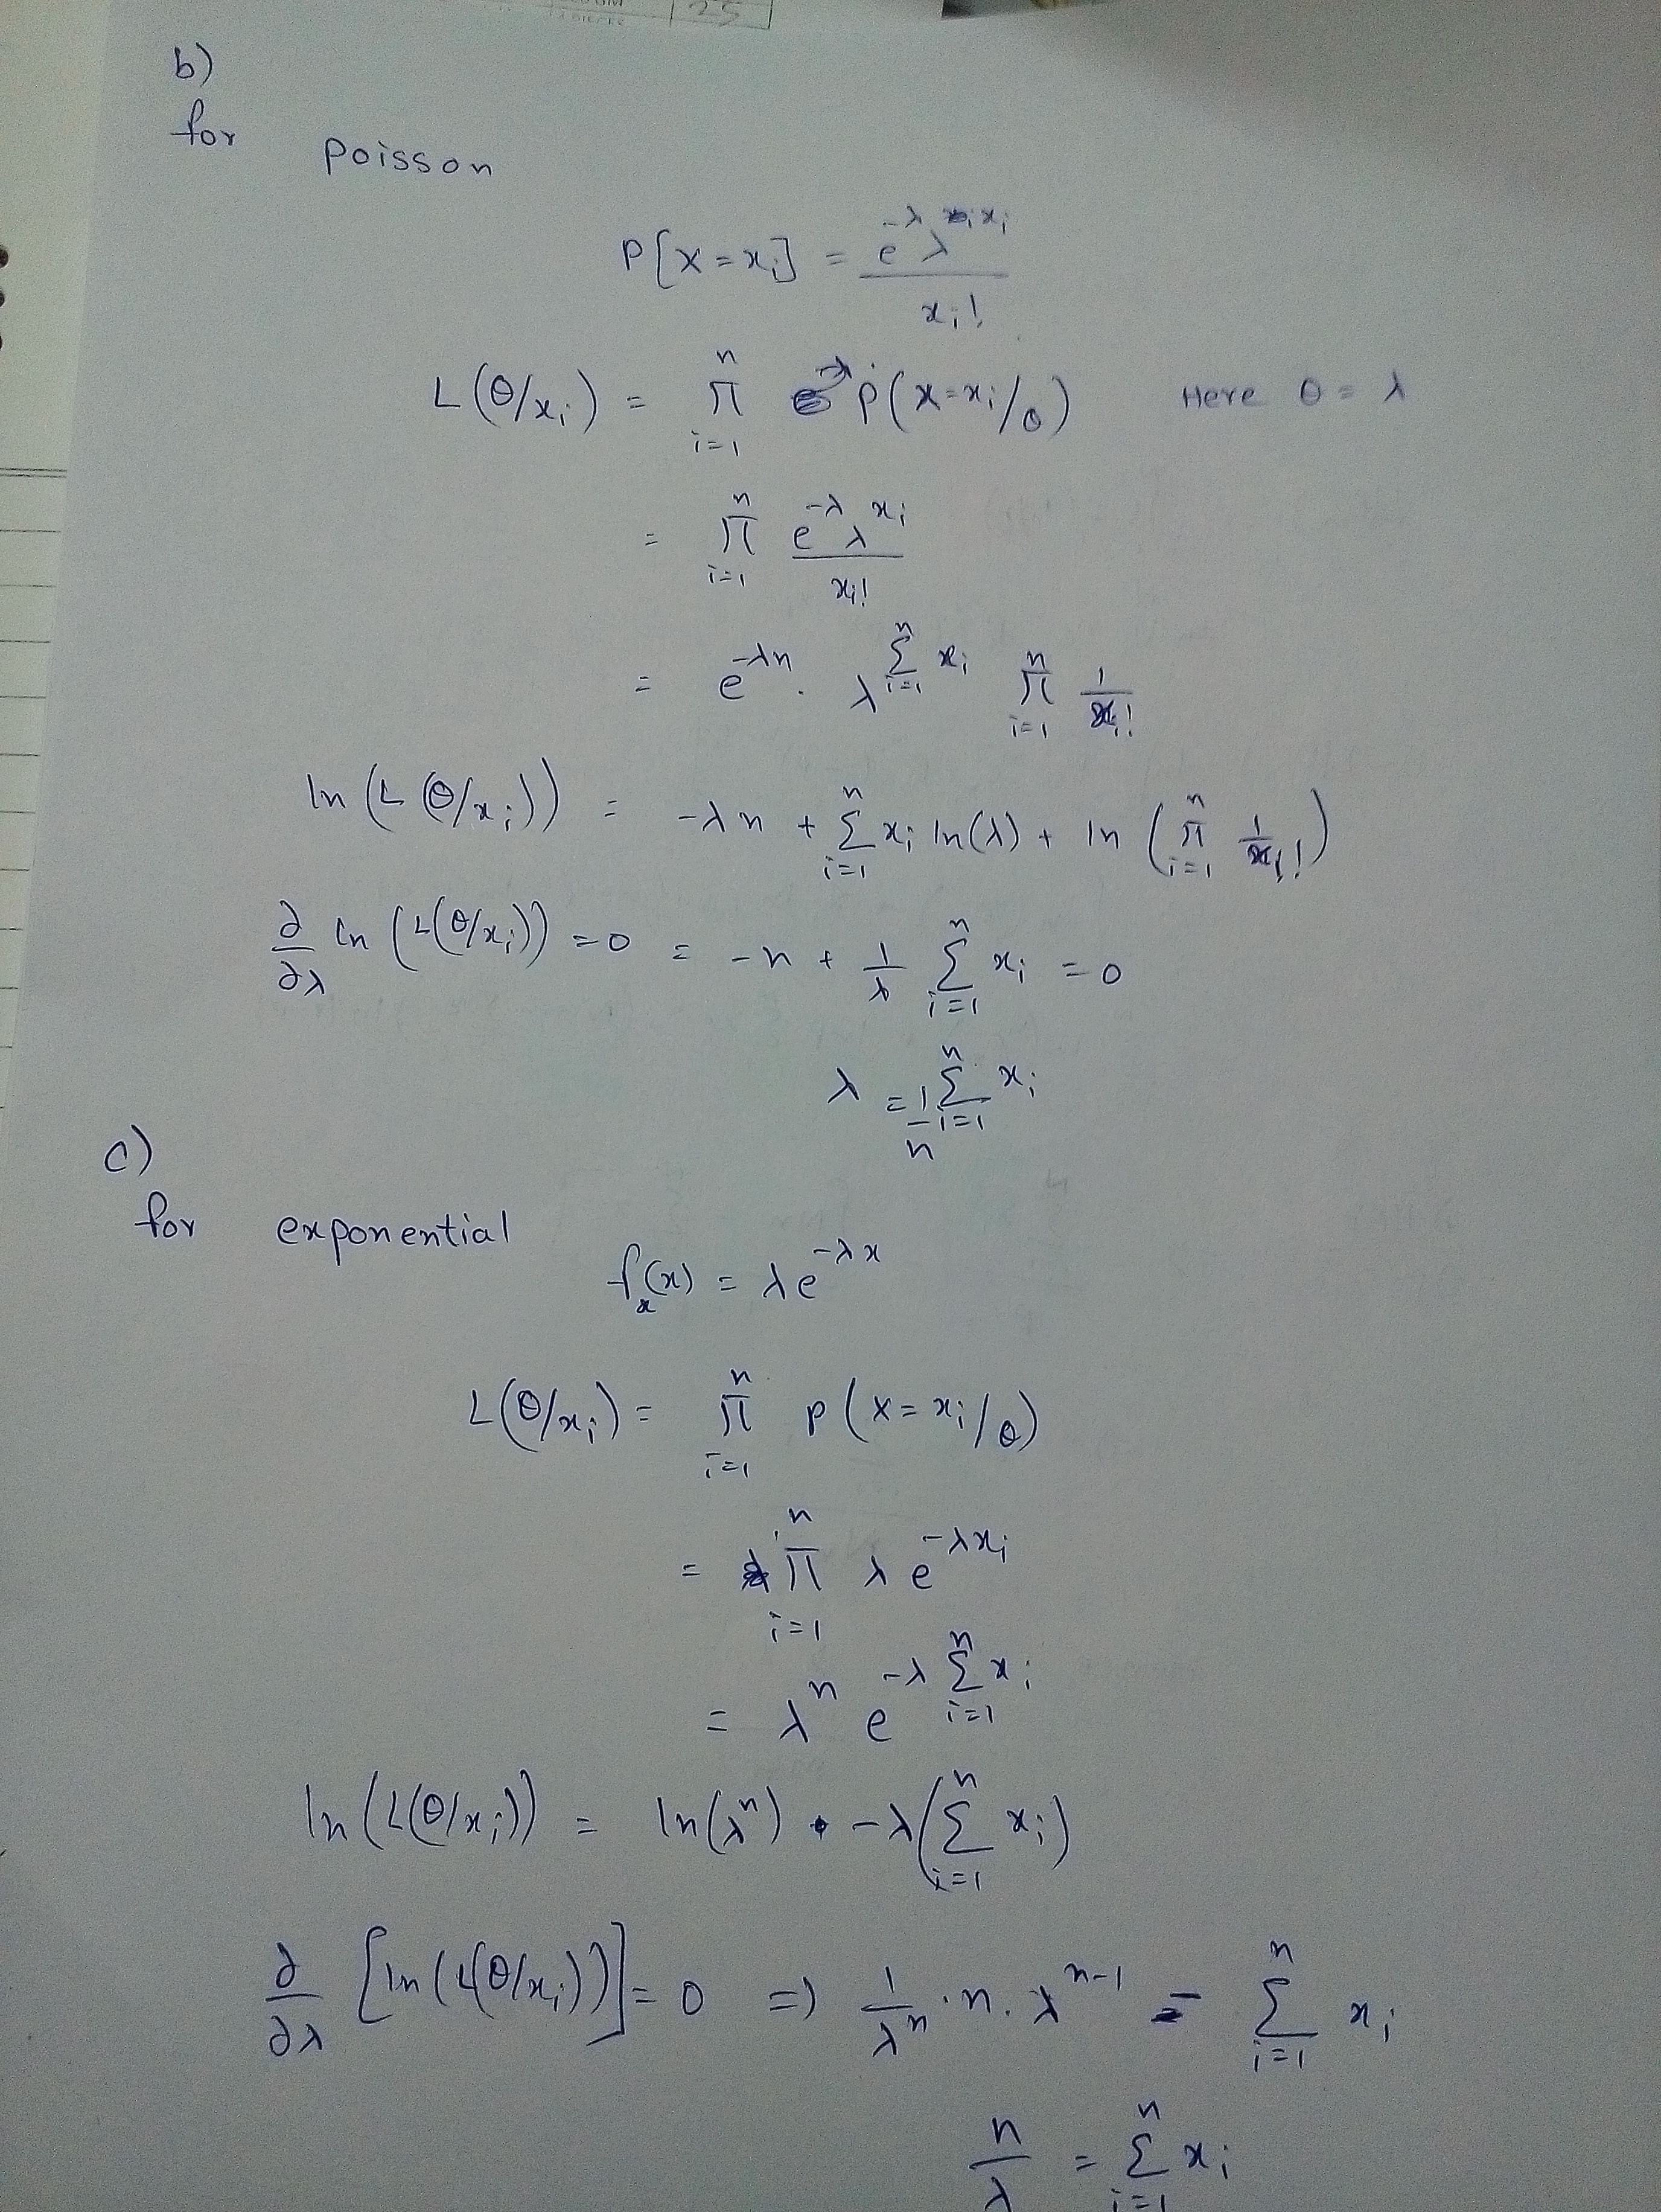 25
b)
for poisson
P[X=xᵢ] = e^{-λ} λ^{xᵢ} / xᵢ!
L(θ/xᵢ) = ∏_{i=1}^{n} P(X=xᵢ/θ) Here θ = λ
= ∏_{i=1}^{n} e^{-λ} λ^{xᵢ} / xᵢ!
= e^{-λn} . λ^{∑_{i=1}^{n} xᵢ} ∏_{i=1}^{n} 1/xᵢ!
ln(L(θ/xᵢ)) = -λn + ∑_{i=1}^{n} xᵢ ln(λ) + ln(∏_{i=1}^{n} 1/xᵢ!)
∂/∂λ ln(L(θ/xᵢ)) = 0 = -n + 1/λ ∑_{i=1}^{n} xᵢ = 0
λ = 1/n ∑_{i=1}^{n} xᵢ
c)
for exponential
fₓ(x) = λe^{-λx}
L(θ/xᵢ) = ∏_{i=1}^{n} P(X=xᵢ/θ)
= ∏_{i=1}^{n} λ e^{-λxᵢ}
= λ^{n} e^{-λ ∑_{i=1}^{n} xᵢ}
ln(L(θ/xᵢ)) = ln(λ^{n}) -λ(∑_{i=1}^{n} xᵢ)
∂/∂λ [ln(L(θ/xᵢ))] = 0 ⇒ 1/λ^{n} . n . λ^{n-1} = ∑_{i=1}^{n} xᵢ
n/λ = ∑_{i=1}^{n} xᵢ